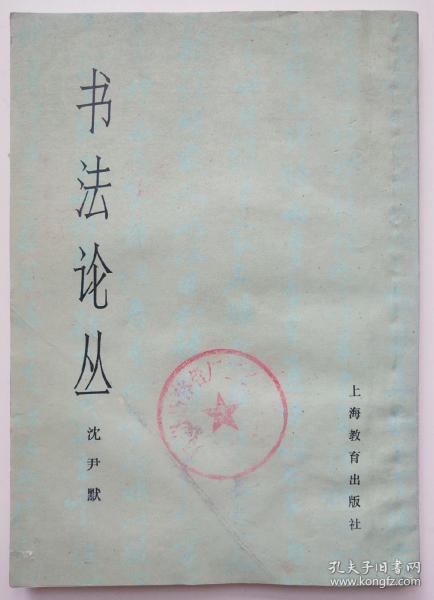 书法论丛
沈尹默
上海教育出版社
孔夫子旧书网
www.kongfz.com